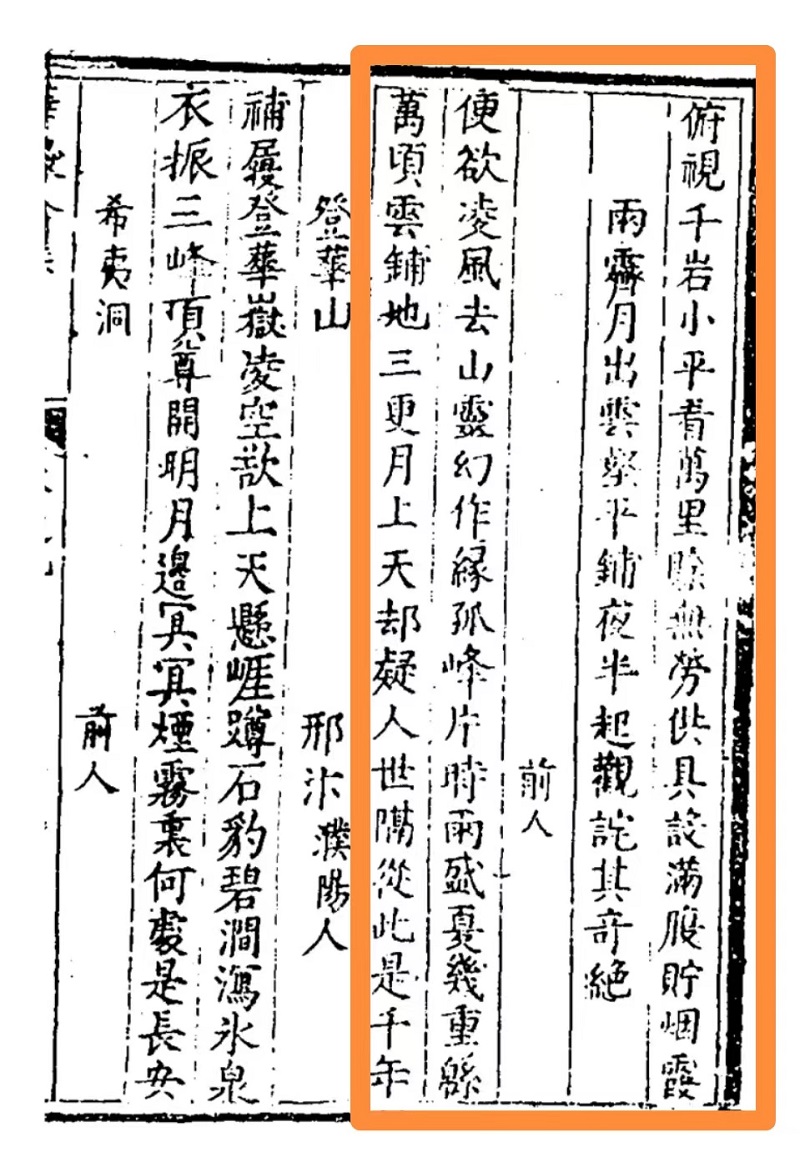 俯視千岩小平看萬里賒無勞供具設滿腹貯烟霞
雨霽月出雲壑平鋪夜半起觀詫其奇絕
前人
便欲凌風去山靈幻作緣孤峰片時雨盛夏幾重緜
萬頃雲鋪地三更月上天却疑人世隔從此是千年
登華山 邢汴濮陽人
補屨登華嶽凌空欲上天懸崖蹲石豹碧澗瀉氷泉
衣振三峰頂尊開明月邊冥冥煙霧裏何處是長安
希夷洞 前人